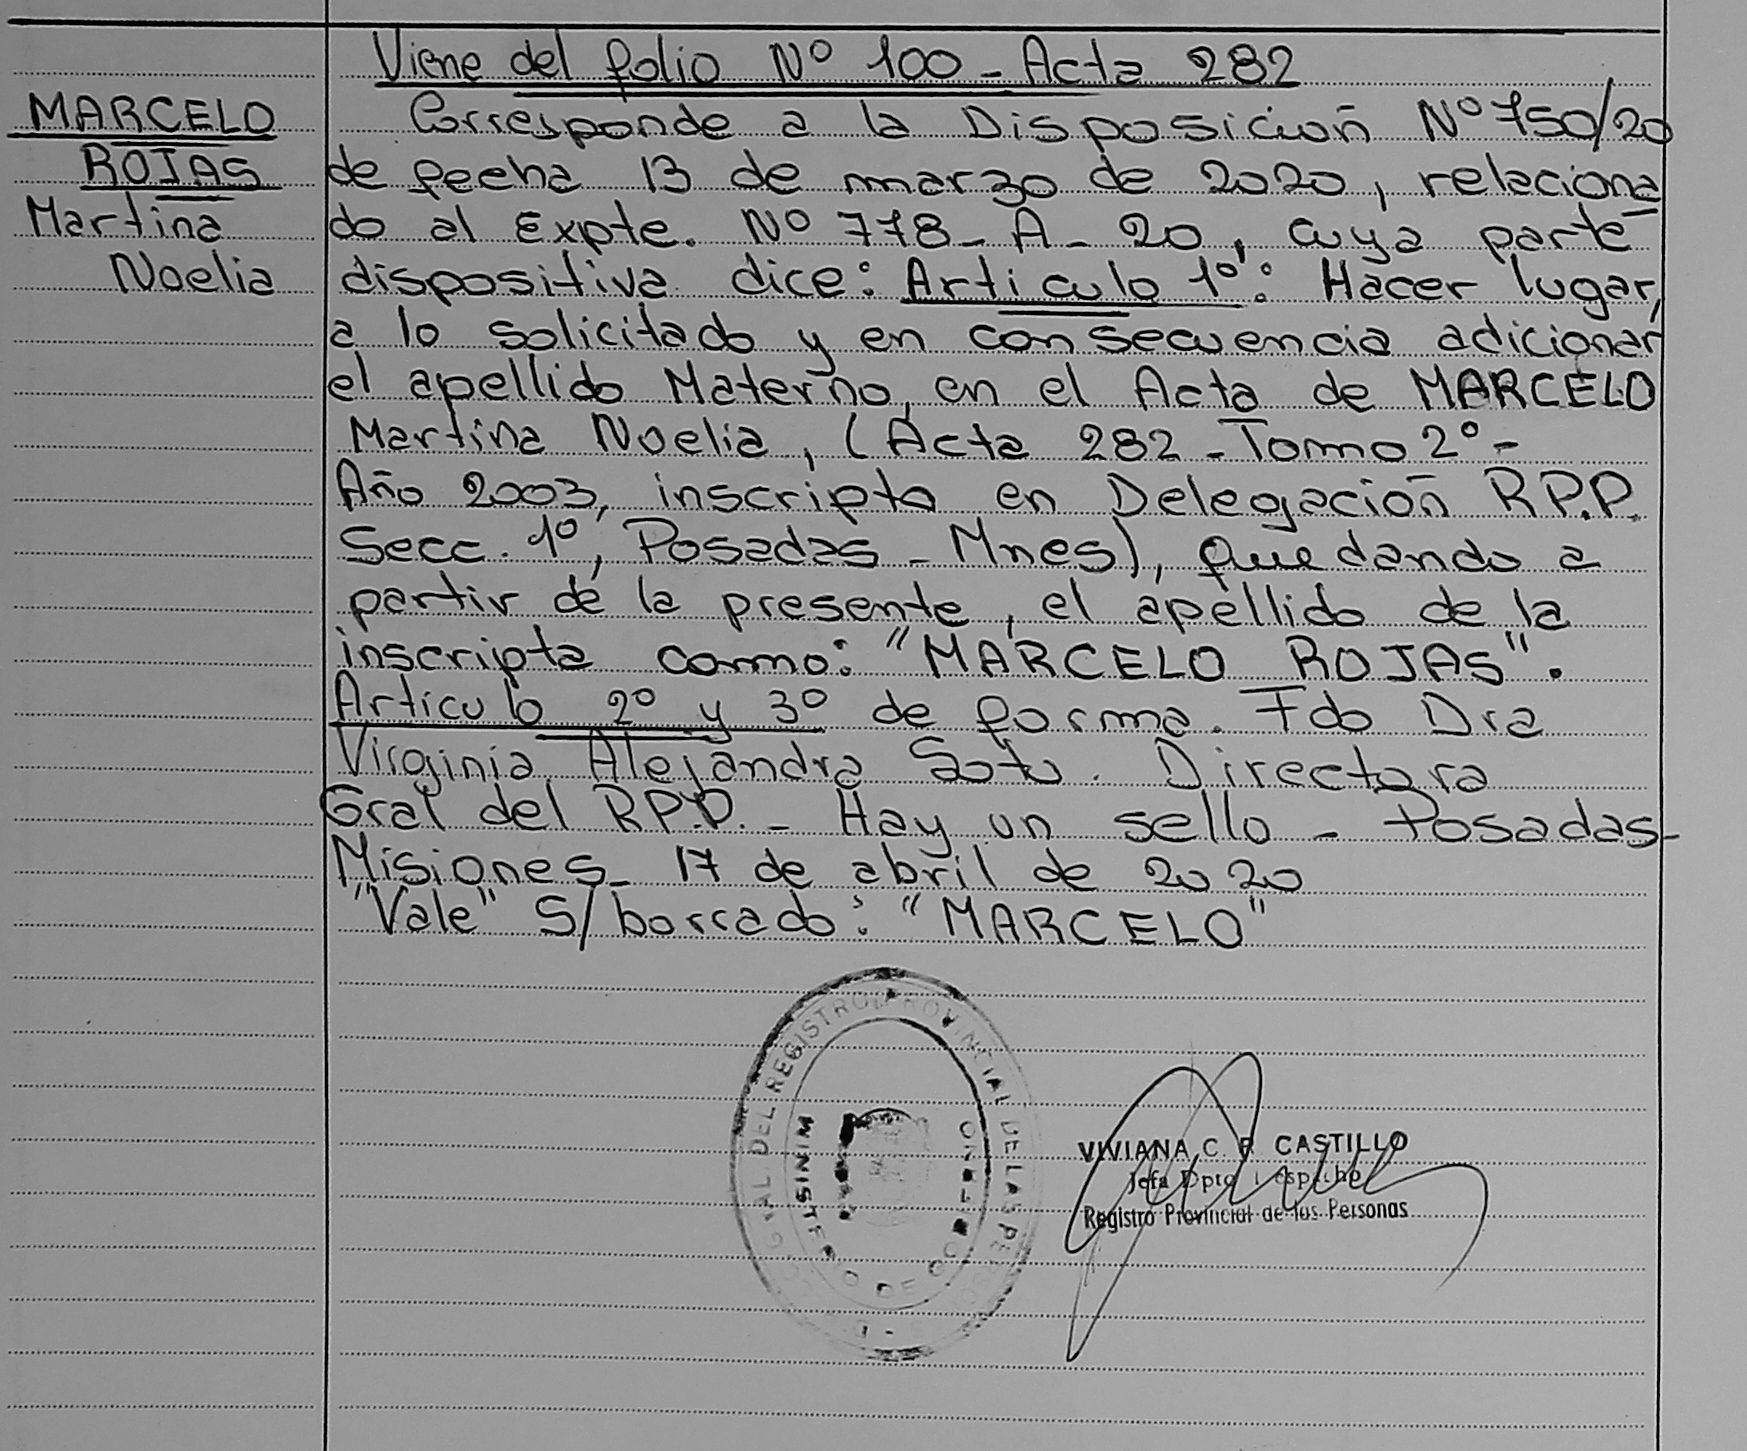 Viene del folio Nº 100 - Acta 282
MARCELO
ROJAS
Martina
Noelia
Corresponde a la Disposición Nº 750/20
de fecha 13 de marzo de 2020, relaciona
do al Expte. Nº 778 - A - 20, cuya parte
dispositiva dice: Articulo 1º: Hacer lugar,
a lo solicitado y en consecuencia adicionar
el apellido Materno, en el Acta de MARCELO
Martina Noelia, (Acta 282 - Tomo 2º -
Año 2003, inscripta en Delegación R.P.P.
Secc. 1º, Posadas - Mnes), quedando a
partir de la presente, el apellido de la
inscripta como: "MARCELO ROJAS".
Articulo 2º y 3º de forma. Fdo Dra
Virginia Alejandra Soto. Directora
Gral del R.P.P. - Hay un sello - Posadas -
Misiones - 17 de abril de 2020
"Vale" S/borrado: "MARCELO"
DEL REGISTRO PROVINCIAL DE LAS
MINISTERIO DE
VIVIANA C. CASTILLO
Jefa Dpto
Registro Provincial de las Personas